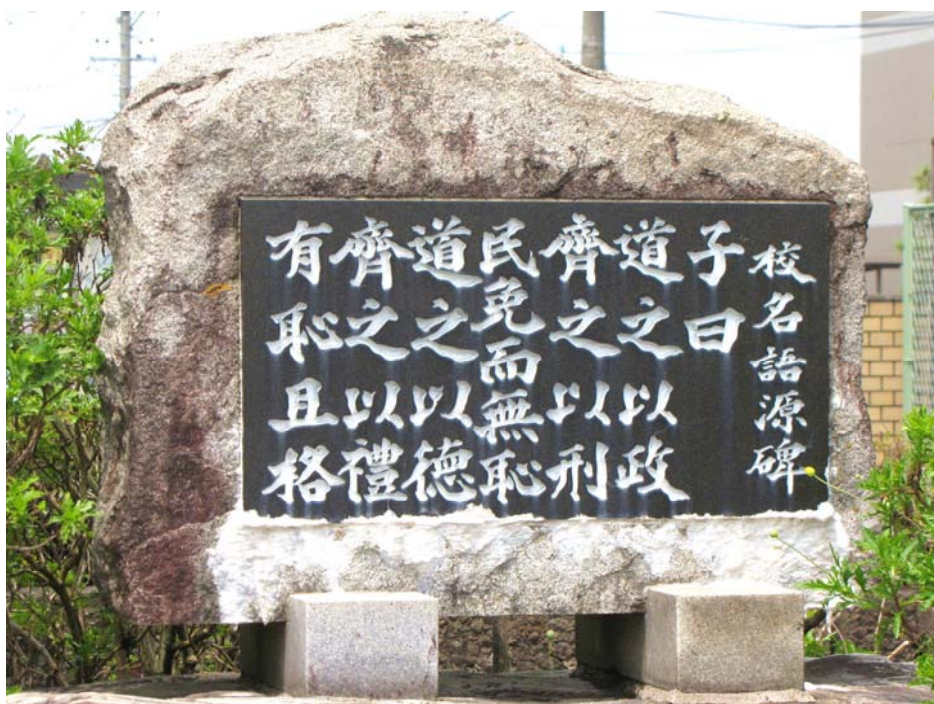 校名語源碑
子曰
道之以政
齊之以刑
民免而無恥
道之以德
齊之以禮
有恥且格